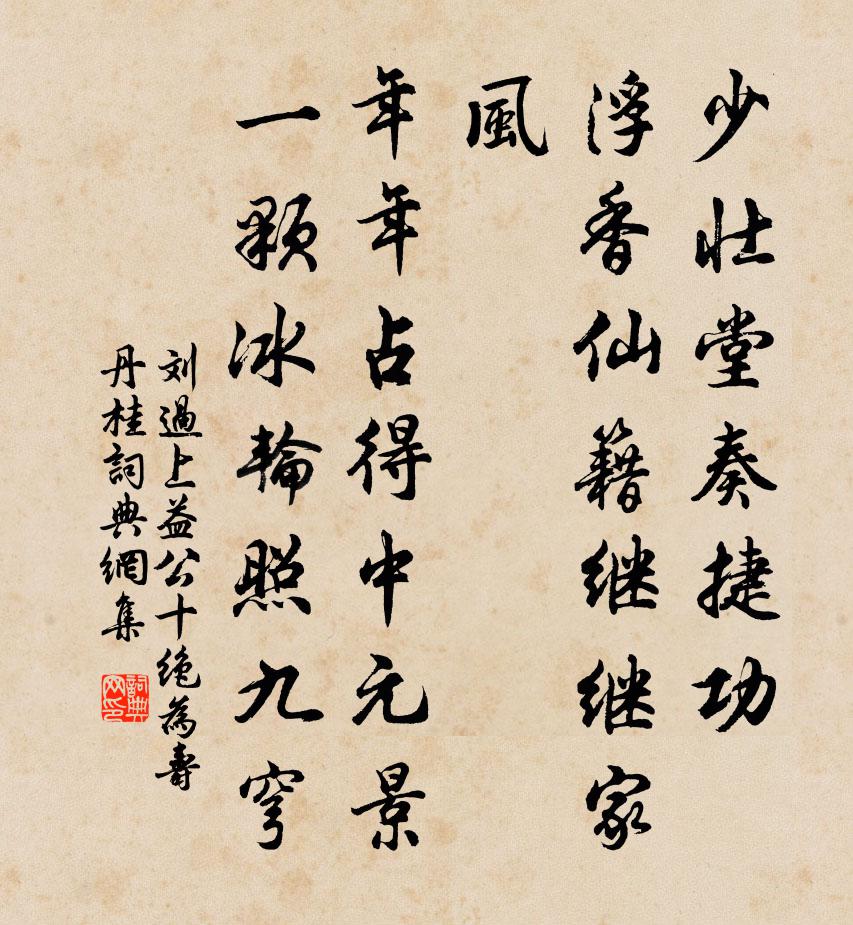 少壮堂奏捷功
浮香仙籍继继家
風
年年占得中元景
一顆冰輪照九穹
刘過上益公十绝為壽
丹桂詞典網集
詞典
网印